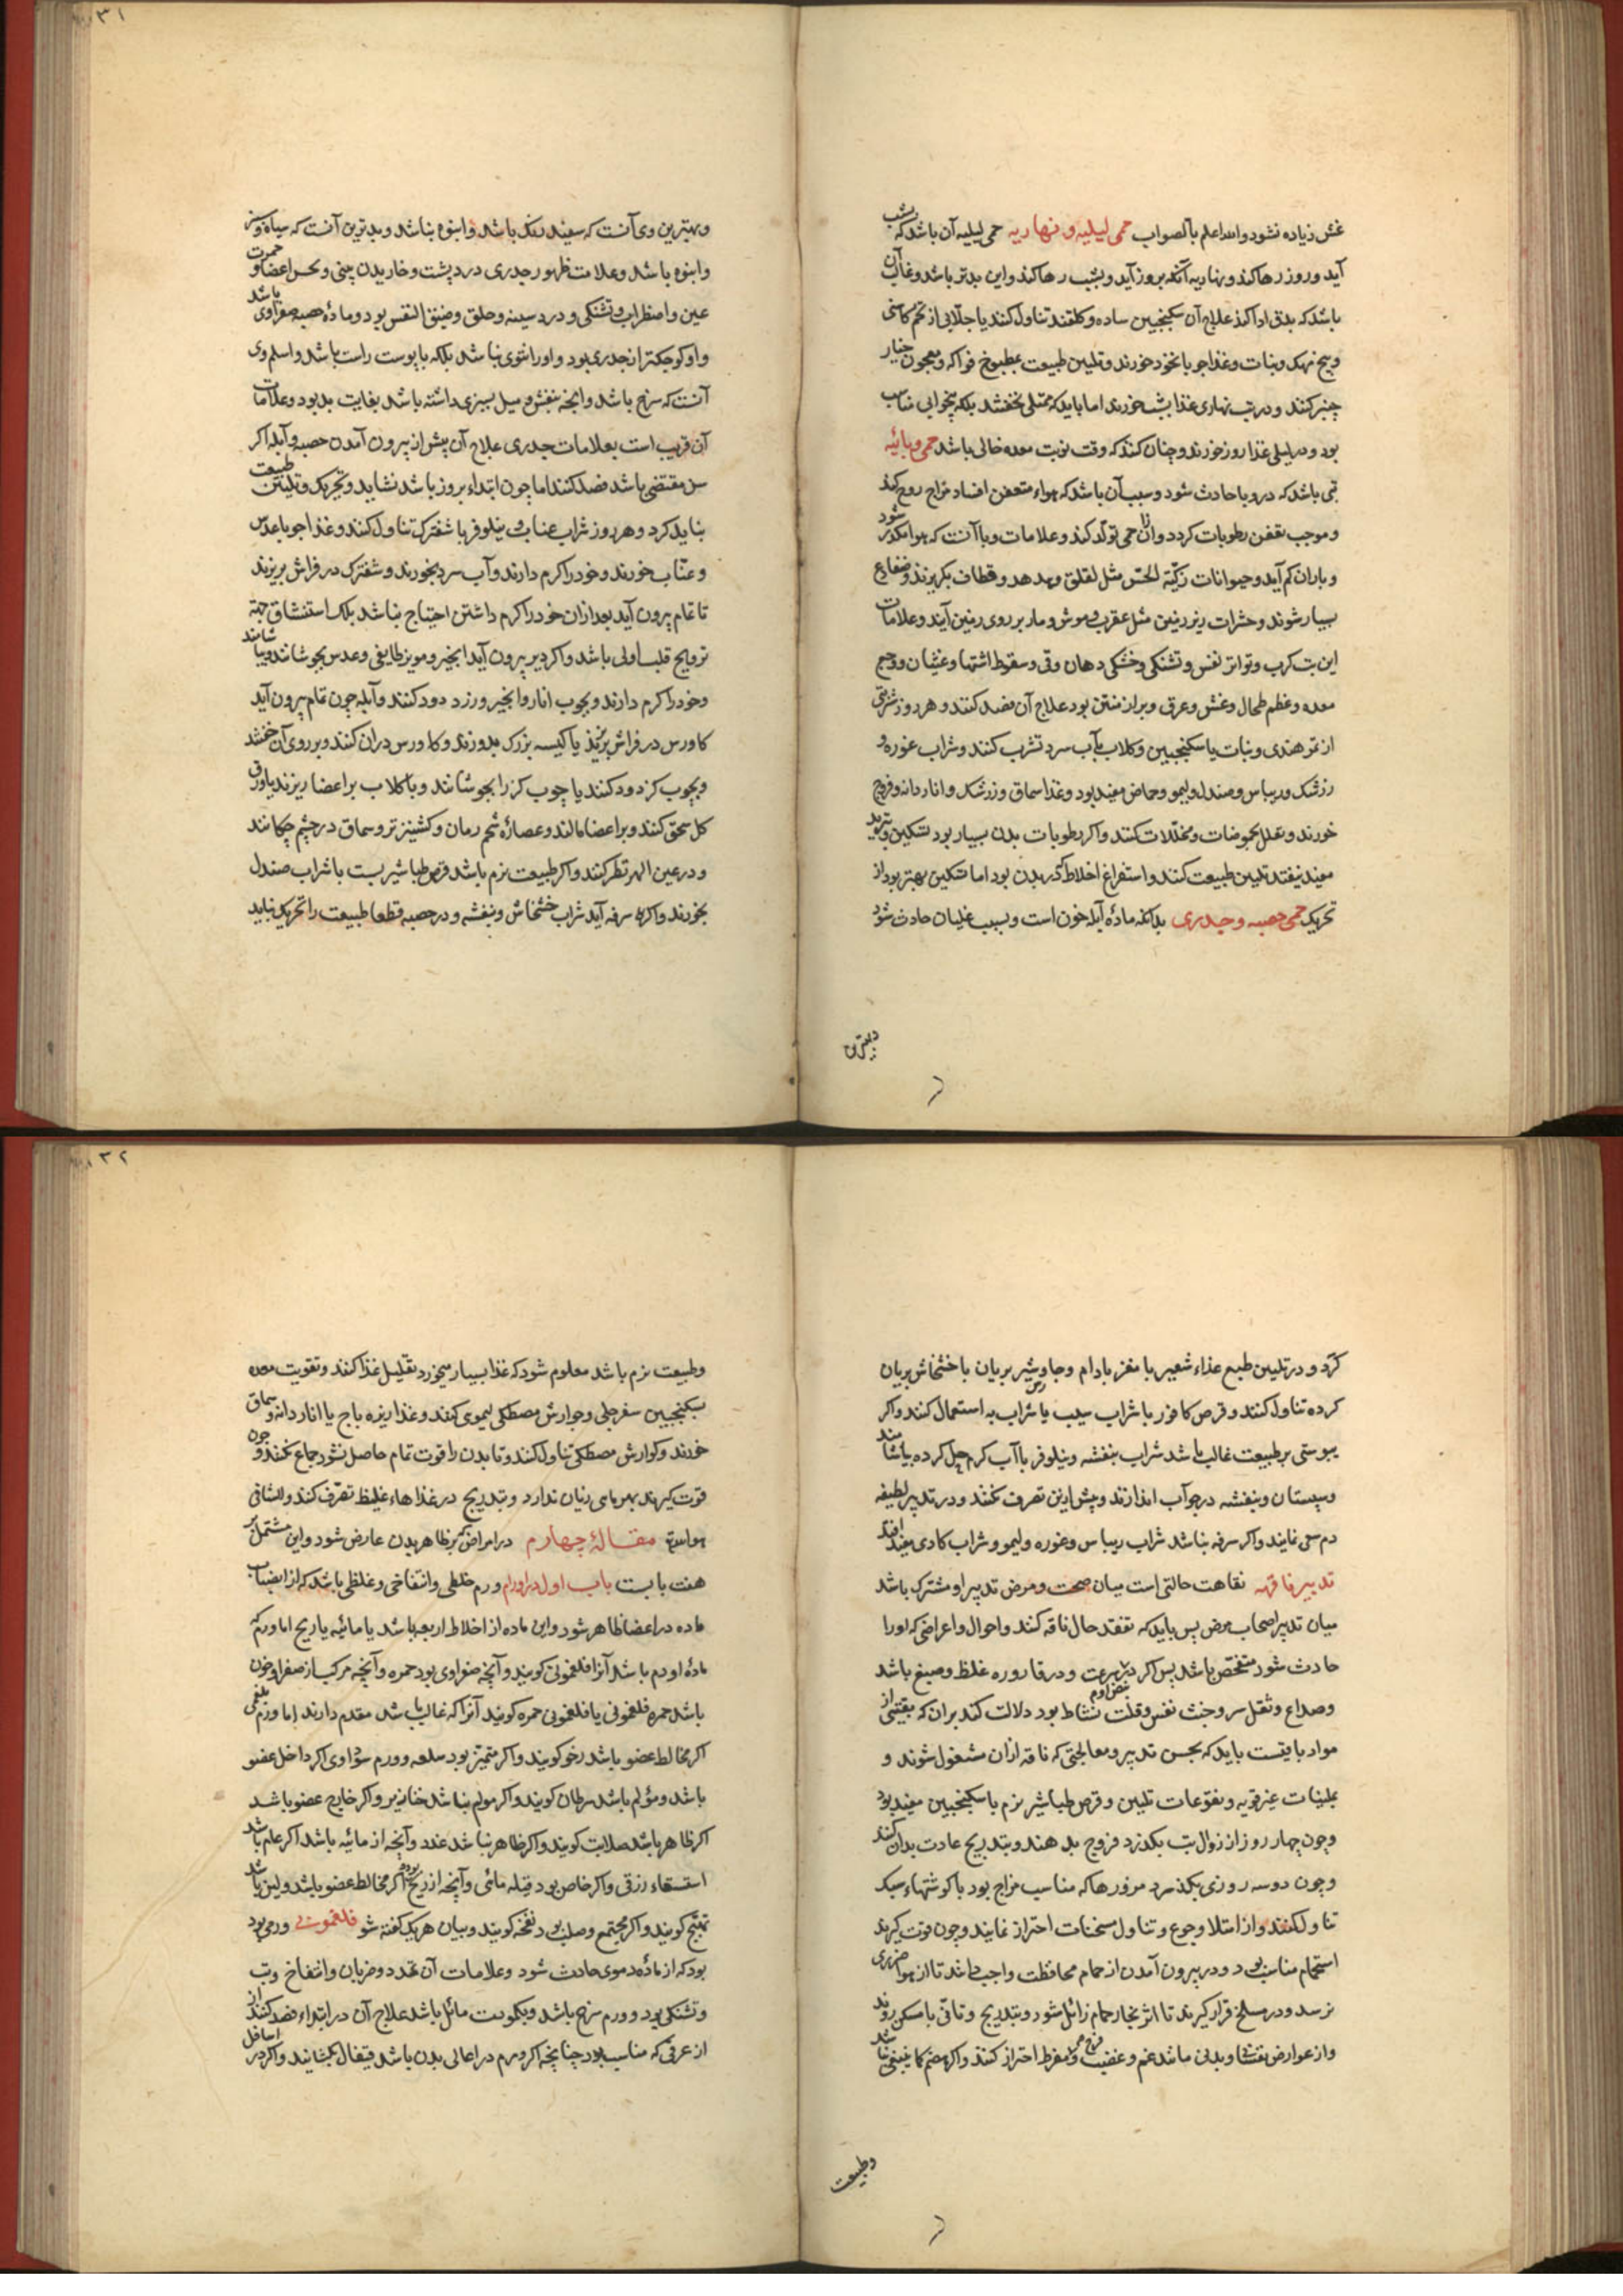 ٣١
غش زیاده نشود والله اعلم بالصواب حمی لیلیه و نهاریه حمی لیلیه آن باشد که بشب
آید و روز رها کند و نهاریه آنکه بروز آید و بشب رها کند و این بدتر باشد و غالب آن
باشد که بدق ادا کند علاج آن سکنجبین ساده و کلقند تناول کنند یا جلابی از تخم کاسنی
و بیخ مهک و نبات و غذا جو با نخود خورند و تلیین طبیعت بمطبوخ فواکه و معجون خیار
چنبر کنند و در تب نهاری غذا بشب خورند اما باید که ممتلی نخفسند بلکه بیخوابی مناسب
بود و در لیلی غذا روز خورند و چنان کنند که وقت نوبت معده خالی باشد حمی وبائیه
تبی باشد که در وبا حادث شود و سبب آن باشد که هواء متعفن افساد مزاج روح کند
و موجب تعفن رطوبات کردد و ازان حمی تولد کند و علامات وبا آنست که هوا مکدر شود
و باران کم آید و حیوانات زکیة الحس مثل لقلق و هدهد و قطاف بگریزند و ضفادع
بسیار شوند و حشرات زیر زمین مثل عقرب و موش و مار بر روی زمین آیند و علامات
این تب کرب و تواتر نفس و تشنکی و خشکی دهان و قی و سقوط اشتها و غثیان و وجع
معده و عظم طحال و غش و عرق و براز منتن بود علاج آن فصد کنند و هر روز شربتی
از تمر هندی و نبات یا سکنجبین و کلاب بآب سرد تشرب کنند و شراب غوره و
زرشک و ریباس و صندل و لیمو و حماض مفید بود و غذا سماق و زرشک و اناردانه و فروج
خورند و تنقل بحموضات و مخللات کنند و اکر رطوبات بدن بسیار بود تسکین و تبرید
مفید نیفتد تلیین طبیعت کنند و استفراغ اخلاط کند بدن بود اما تسکین بهتر بود از
تحریک حمی حصبه و جدری بدانکه مادّه آبله خون است و بسبب غلیان حادث شود
وبهترین
و بهترین وی آنست که سفید رنک باشد و انبوه نباشد و بدترین آنست که سیاه و سبز
و انبوه باشد و علامت ظهور جدری درد پشت و خاریدن بینی و نخس اعضا و حمرت
عین و اضطراب و تشنکی و درد سینه و حلق و ضیق النفس بود و مادّه حصبه صفراوی باشد
و او کوچکتر از جدری بود و او را نتوی نباشد بلکه با پوست راست باشد و اسلم وی
آنست که سرخ باشد و آنچه بنفش و میل بسبزی داشته باشد بغایت بد بود و علامات
آن قریب است بعلامات جدری علاج آن پیش از بیرون آمدن حصبه و آبله اکر
سن مقتضی باشد فصد کنند اما چون ابتداء بروز باشد نشاید و تحریک و تلیین طبیعت
نباید کرد و هر روز شراب عناب و نیلوفر با شفترک تناول کنند و غذا جو با عدس
و عنّاب خورند و خود را کرم دارند و آب سرد بخورند و شفترک در فراش بریزند
تا تمام بیرون آید بعد ازان خود را کرم داشتن احتیاج نباشد بلک استنشاق جهة
ترویح قلب اولی باشد و اکر دیر بیرون آید انجیر و مویز طایفی و عدس بجوشانند و بیاشامند
و خود را کرم دارند و بچوب انار و انجیر و رزد دود کنند و آبله چون تمام بیرون آید
کاورس در فراش بریزند یا کیسه بزرک بدوزند و کاورس دران کنند و بر روی آن خفسند
و بچوب کز دود کنند یا چوب کز را بجوشانند و با کلاب بر اعضا ریزند یا ورق
کل سحق کنند و بر اعضا مالند و عصارّه شحم رمان و کشنیز تر و سماق در چشم چکانند
و در عین المهر نظر کنند و اکر طبیعت نرم باشد قرص طباشیر بست با شراب صندل
بخورند و اکر سرفه آید شراب خشخاش و بنفشه و در حصبه قطعا طبیعت را تحریک نباید
٣٢
کرد و در تلیین طبع غذاء شعیر با مغز بادام و جاورس بریان با خشخاش بریان
کرده تناول کنند و قرص کافور با شراب سیب یا شراب به استعمال کنند و اکر
یبوستی بر طبیعت غالب باشد شراب بنفشه و نیلوفر با آب کرم حل کرده بیاشامند
و سپستان و بنفشه در جو آب اندازند و بیش ازین تصرف نکنند و در تدبیر لطیفه
دم سعی نمایند و اکر سرفه نباشد شراب ریباس و غوره و لیمو و شراب کادی مفید افتد
تدبیر ناقه نقاهت حالتی است میان صحت و مرض تدبیر او مشترک باشد
میان تدبیر اصحاب مرض پس باید که تفقد حال ناقه کنند و احوال و اعراضی که او را
حادث شود متفحّص باشد پس اکر در نبض او سرعت و در قاروره غلظ و صبغ باشد
و صداع و ثقل سر و خبث نفس و قلت نشاط بود دلالت کند بران که بقیتی از
مواد باقیست باید که بحسن تدبیر و معالجتی که ناقه ازان مشغول شوند و
بملینات غیر قویه و نقوعات تلیین و قرص طباشیر نرم با سکنجبین مفید بود
و چون چهار روز از زوال تب بکذرد فروج بدهند و بتدریج عادت بدان کنند
و چون دو سه روزی بکذرد مزورها که مناسب مزاج بود با کوشتهاء سبک
تناول کنند و از امتلا و جوع و تناول مسخنات احتراز نمایند و چون قوت کیرند
استحمام مناسب بود و در بیرون آمدن از حمام محافظت واجب دانند تا از هوا ضرری
نرسد و در مسلخ قرار کیرند تا اثر بخار حمام زائل شود و بتدریج و تانّی با مسکن روند
و از عوارض نفسانی و بدنی مانند غم و غضب و فرح مفرط احتراز کنند و اکر هضم کما ینبغی نباشد
وطبیعت
و طبیعت نرم باشد معلوم شود که غذا بسیار میخورد تقلیل غذا کنند و تقویت معده
بسکنجبین سفرجلی و جوارش مصطکی لیموی کنند و غذا زیره باج یا اناردانه و سماق
خورند و کوارش مصطکی تناول کنند و تا بدن را قوت تمام حاصل نشود جماع نکنند و چون
قوت کیرند بهر مای زیان ندارد و بتدریج در غذاهاء غلیظ تصرّف کنند والشافی
هوالله مقالۀ چهارم در امراضی که بر ظاهر بدن عارض شود و این مشتمل بر
هفت بابست باب اول در اورام ورم غلظی و انتفاخی و غلظی باشد که از انصباب
ماده در اعضا ظاهر شود و این ماده از اخلاط اربعه باشد یا مائیه یا ریح اما ورم که
مادّه او دم باشد آنرا فلغمونی کویند و آنچه صفراوی بود حمره و آنچه مرکب از صفرا و خون
باشد حمره فلغمونی یا فلغمونی حمره کویند آنرا که غالب باشد مقدم دارند اما ورم بلغمی
اکر مخالط عضو باشد رخو کویند و اکر متمیّز بود سلعه و ورم سوداوی اکر داخل عضو
باشد و مؤلم باشد سرطان کویند و اکر مولم نباشد خنازیر و اکر خارج عضو باشد
اکر ظاهر باشد صلابت کویند و اکر ظاهر نباشد غدد و آنچه از مائیه باشد اکر عام باشد
استسقاء زقی و اکر خاص بود قیله مائی و آنچه از ریح بود اکر مخالط عضو باشد و لین باشد
تهبّج کویند و اکر مجتمع و صلب بود نفخه کویند و بیان هر یک کفته شود فلغمونی ورمی بود
بود که از مادّه دموی حادث شود و علامات آن تمدد و ضربان و انتفاخ و تب
و تشنکی بود و ورم سرخ باشد و بکمودت مائل باشد علاج آن در ابتداء فصد کنند از
از عرقی که مناسب بود چنانچه اکر ورم در اعالی بدن باشد قیفال بکشایند و اکر در اسافل